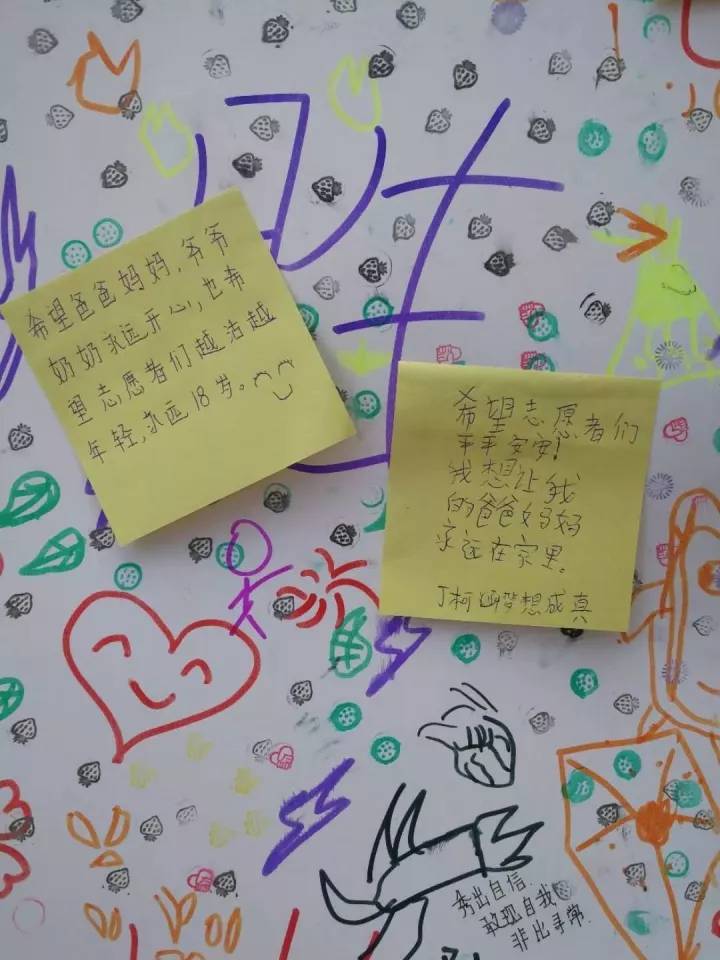 希望爸爸妈妈,爷爷
奶奶永远开心,也希
望志愿者们越活越
年轻,永远18岁。
希望志愿者们
平平安安!
我想让我
的爸爸妈妈
永远在家里。
丁柯 梦想成真
秀出自信
敢现自我
非比寻常